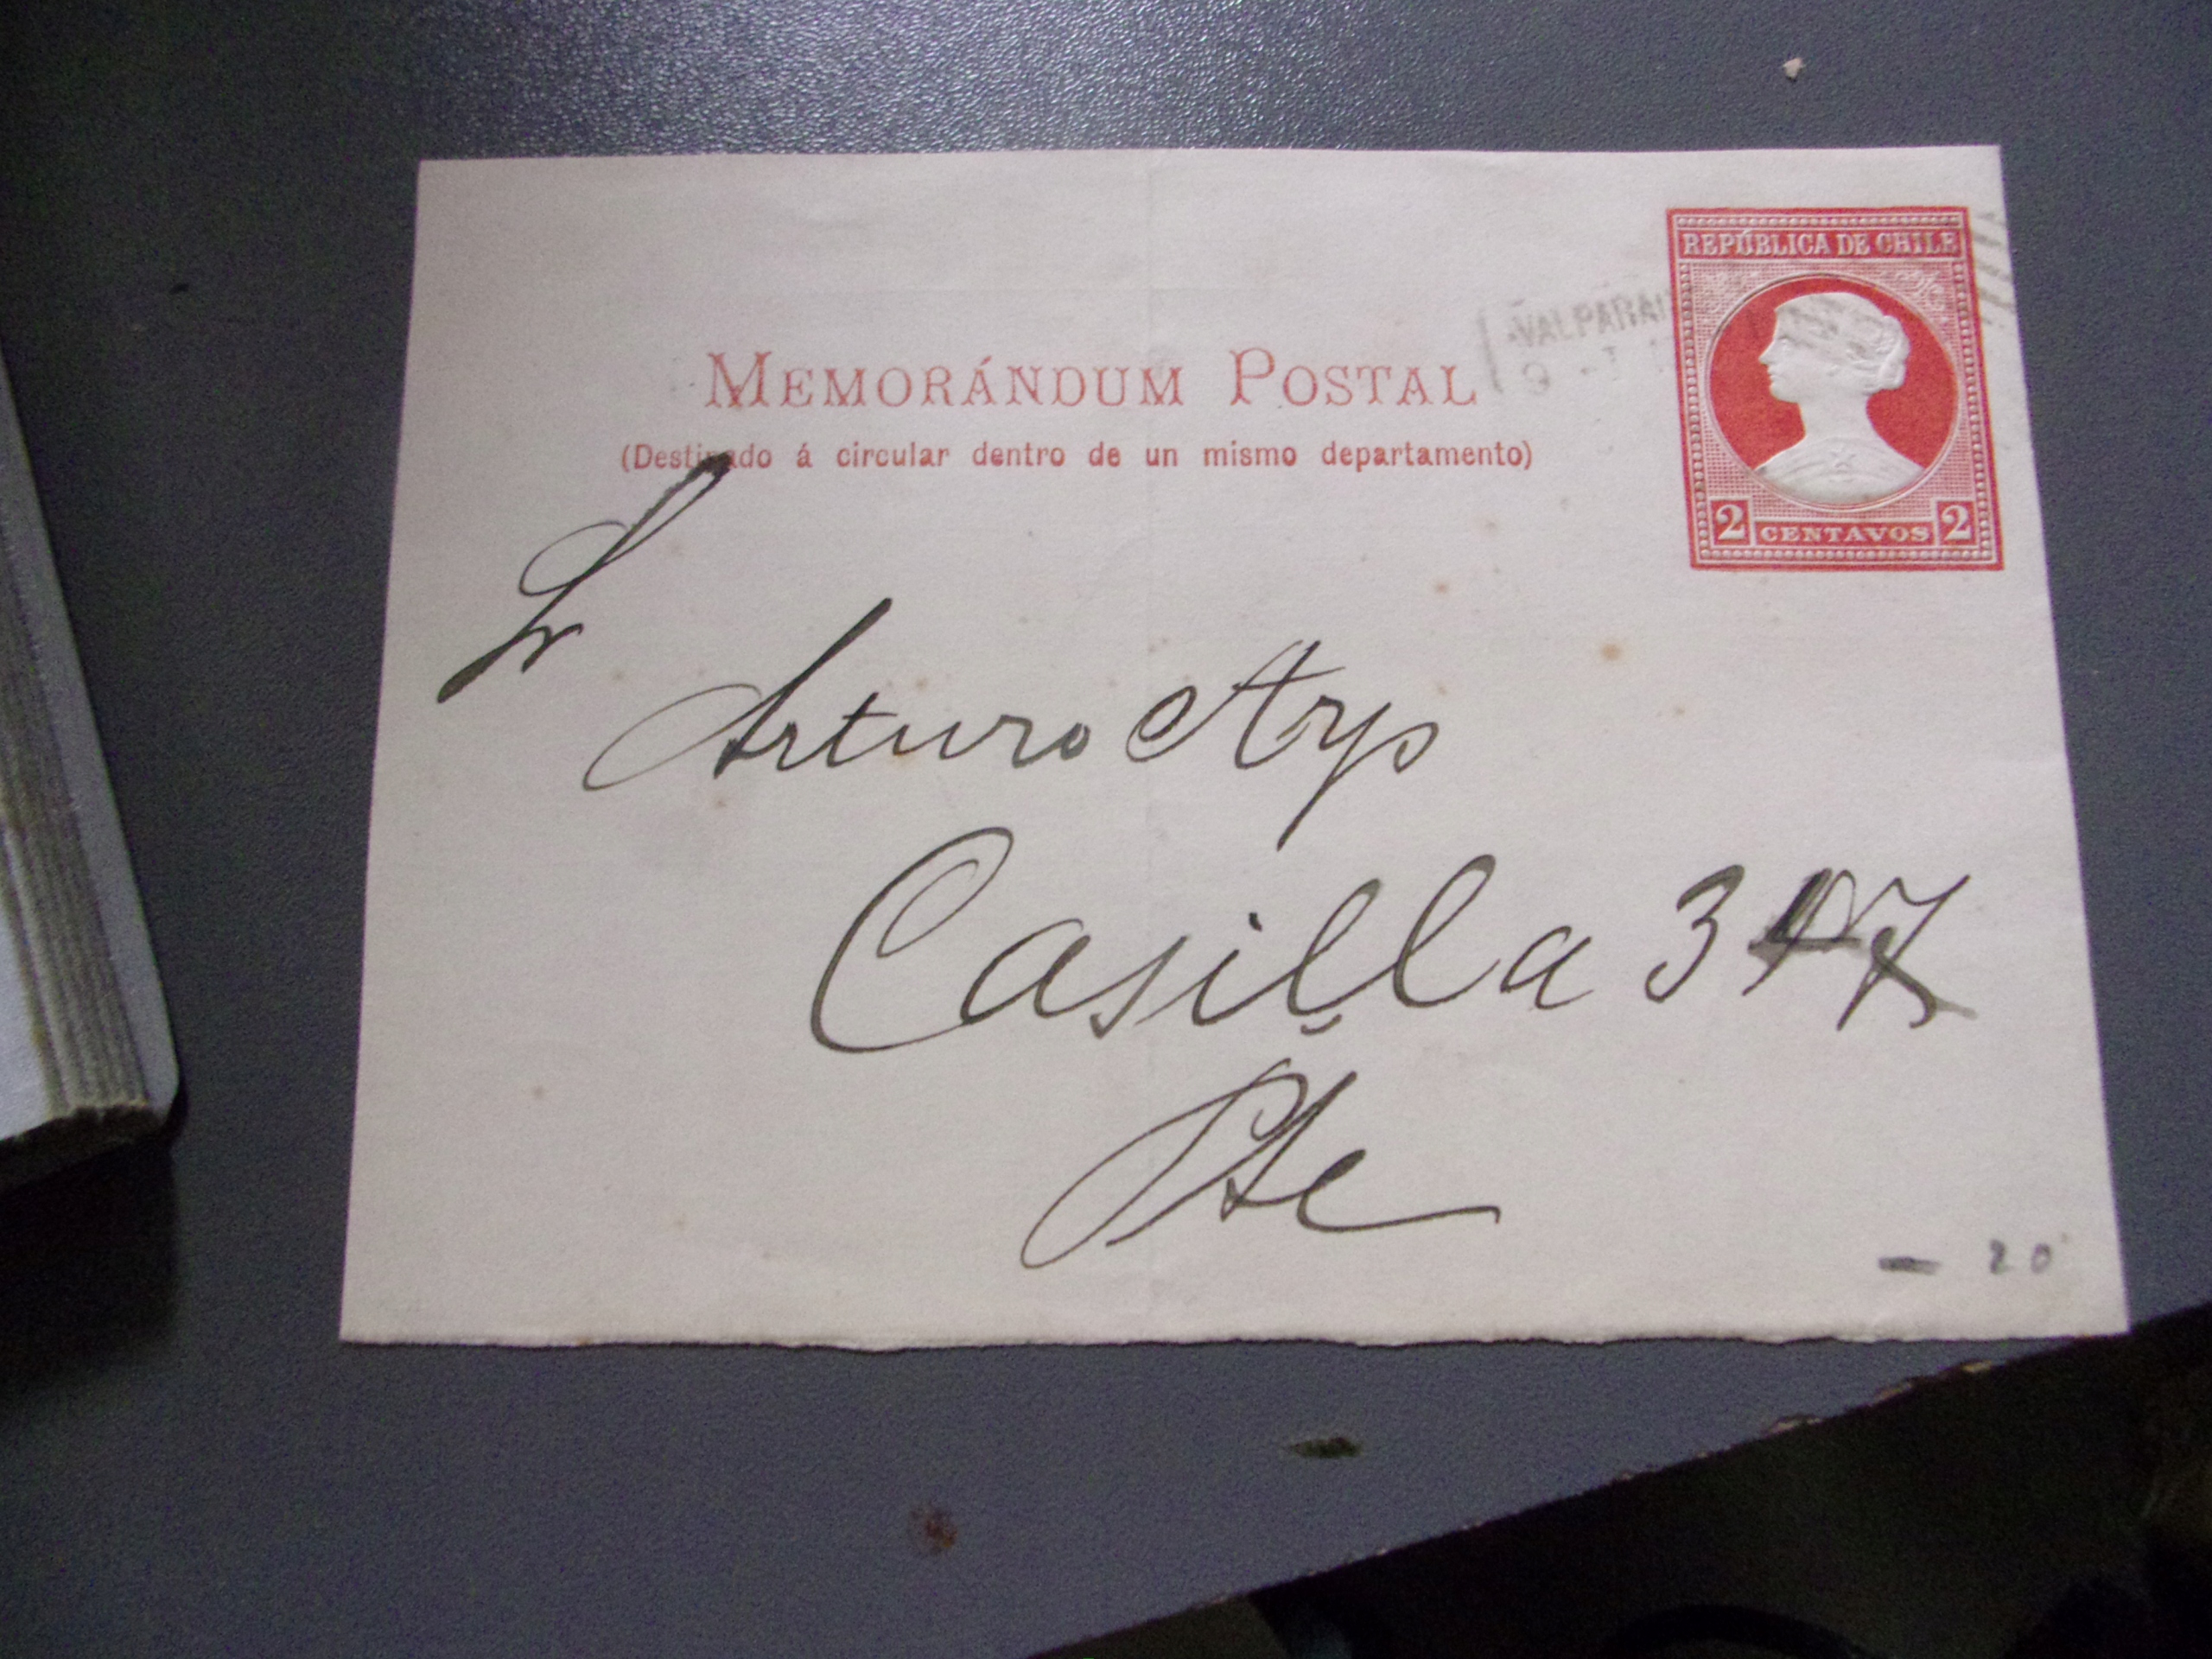 REPÚBLICA DE CHILE
VALPARAI
MEMORÁNDUM POSTAL
(Destinado á circular dentro de un mismo departamento)
2 CENTAVOS 2
Sr
Arturo
Casilla 3
Pte
- 20